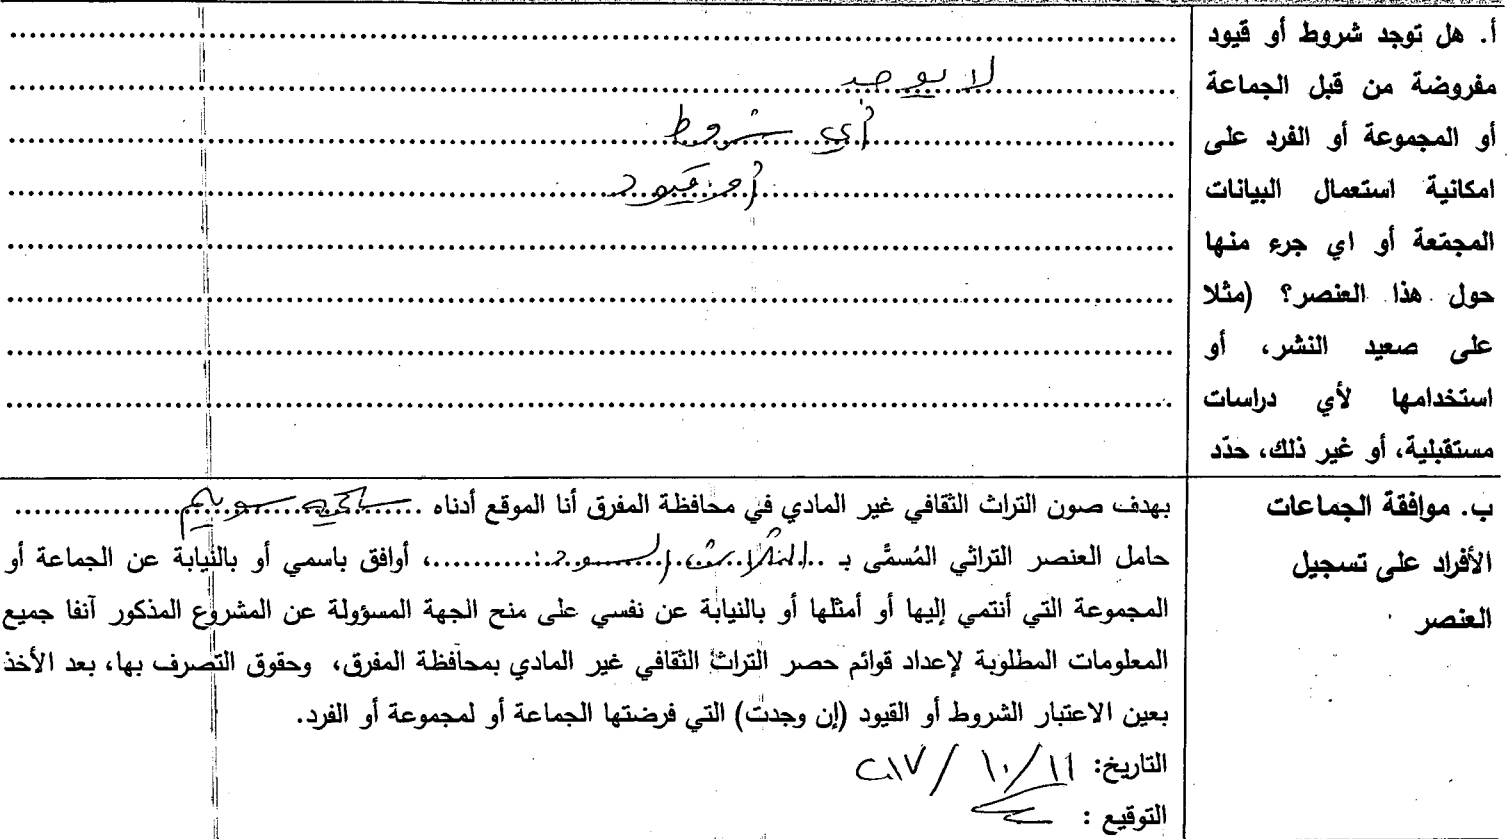 أ. هل توجد شروط أو قيود
مفروضة من قبل الجماعة
أو المجموعة أو الفرد على
امكانية استعمال البيانات
المجمّعة أو اي جرء منها
حول هذا العنصر؟ (مثلا
على صعيد النشر، أو
استخدامها لأي دراسات
مستقبلية، أو غير ذلك، حدّد
لا يوجد
أي شروط
أو قيود
ب. موافقة الجماعات
الأفراد على تسجيل
العنصر
بهدف صون التراث الثقافي غير المادي في محافظة المفرق أنا الموقع أدناه سويلم
حامل العنصر التراثي المُسمَّى بـ السود، أوافق باسمي أو بالنّيابة عن الجماعة أو
المجموعة التي أنتمي إليها أو أمثلها أو بالنيابة عن نفسي على منح الجهة المسؤولة عن المشروع المذكور آنفا جميع
المعلومات المطلوبة لإعداد قوائم حصر التراث الثقافي غير المادي بمحافظة المفرق، وحقوق التصرف بها، بعد الأخذ
بعين الاعتبار الشروط أو القيود (إن وجدت) التي فرضتها الجماعة أو لمجموعة أو الفرد.
التاريخ: ١١/١٠/٢٠١٧
التوقيع :